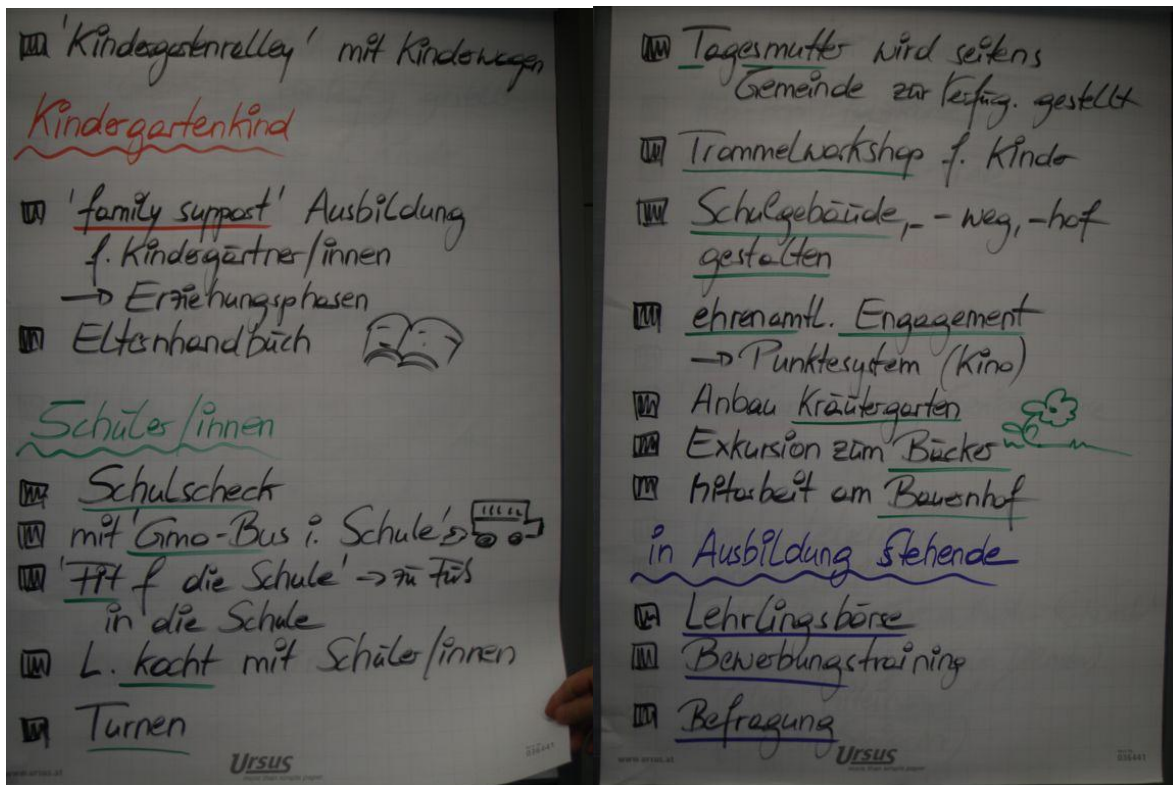 'Kindergartenralley' mit Kinderwagen
Kindergartenkind
'family support' Ausbildung
f. Kindergärtner/innen
→ Erziehungsphasen
Elternhandbuch
Schüler/innen
Schulscheck
mit 'Gmo-Bus i. Schule'
'Fit f die Schule' → zu Fuß
in die Schule
L. kocht mit Schüler/innen
Turnen
www.ursus.at
Ursus
more than simple paper
036441
Tagesmutter wird seitens
Gemeinde zur Verfüg. gestellt
Trommelworkshop f. Kinder
Schulgebäude, -weg, -hof
gestalten
ehrenamtl. Engagement
→ Punktesystem (Kino)
Anbau Kräutergarten
Exkursion zum Bäcker
Mitarbeit am Bauernhof
in Ausbildung Stehende
Lehrlingsbörse
Bewerbungstraining
Befragung
www.ursus.at
Ursus
more than simple paper